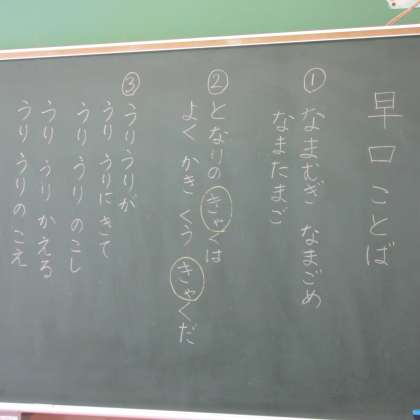 早口ことば
① なまむぎ なまごめ
なまたまご
② となりの きゃくは
よく かき くう きゃくだ
③ うりうりが
うり うりに きて
うり うり のこし
うり うり かえる
うり うりの こえ